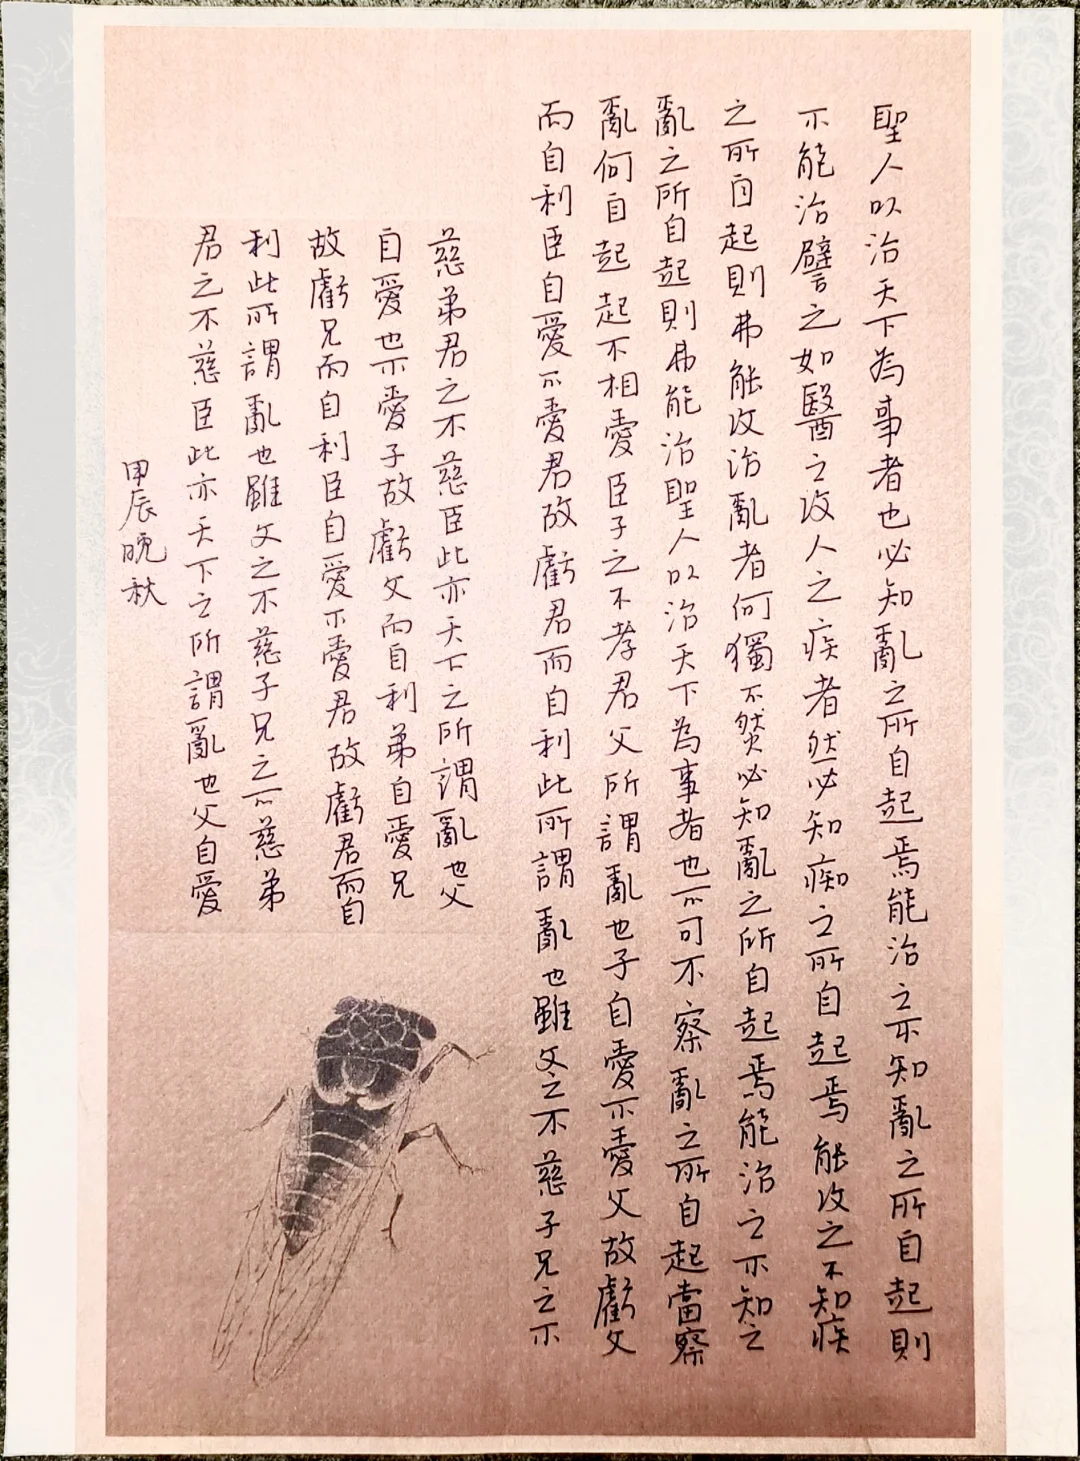 聖人以治天下為事者也必知亂之所自起焉能治之不知亂之所自起則
不能治譬之如醫之攻人之疾者然必知痴之所自起焉能攻之不知疾
之所自起則弗能攻治亂者何獨不然必知亂之所自起焉能治之不知之
亂之所自起則弗能治聖人以治天下為事者也不可不察亂之所自起當察
亂何自起起不相愛臣子之不孝君父所謂亂也子自愛不愛父故虧父
而自利臣自愛不愛君故虧君而自利此所謂亂也雖父之不慈子兄之不
慈弟君之不慈臣此亦天下之所謂亂也父
自愛也不愛子故虧父而自利弟自愛兄
故虧兄而自利臣自愛不愛君故虧君而自
利此所謂亂也雖父之不慈子兄之不慈弟
君之不慈臣此亦天下之所謂亂也父自愛
甲辰晚秋